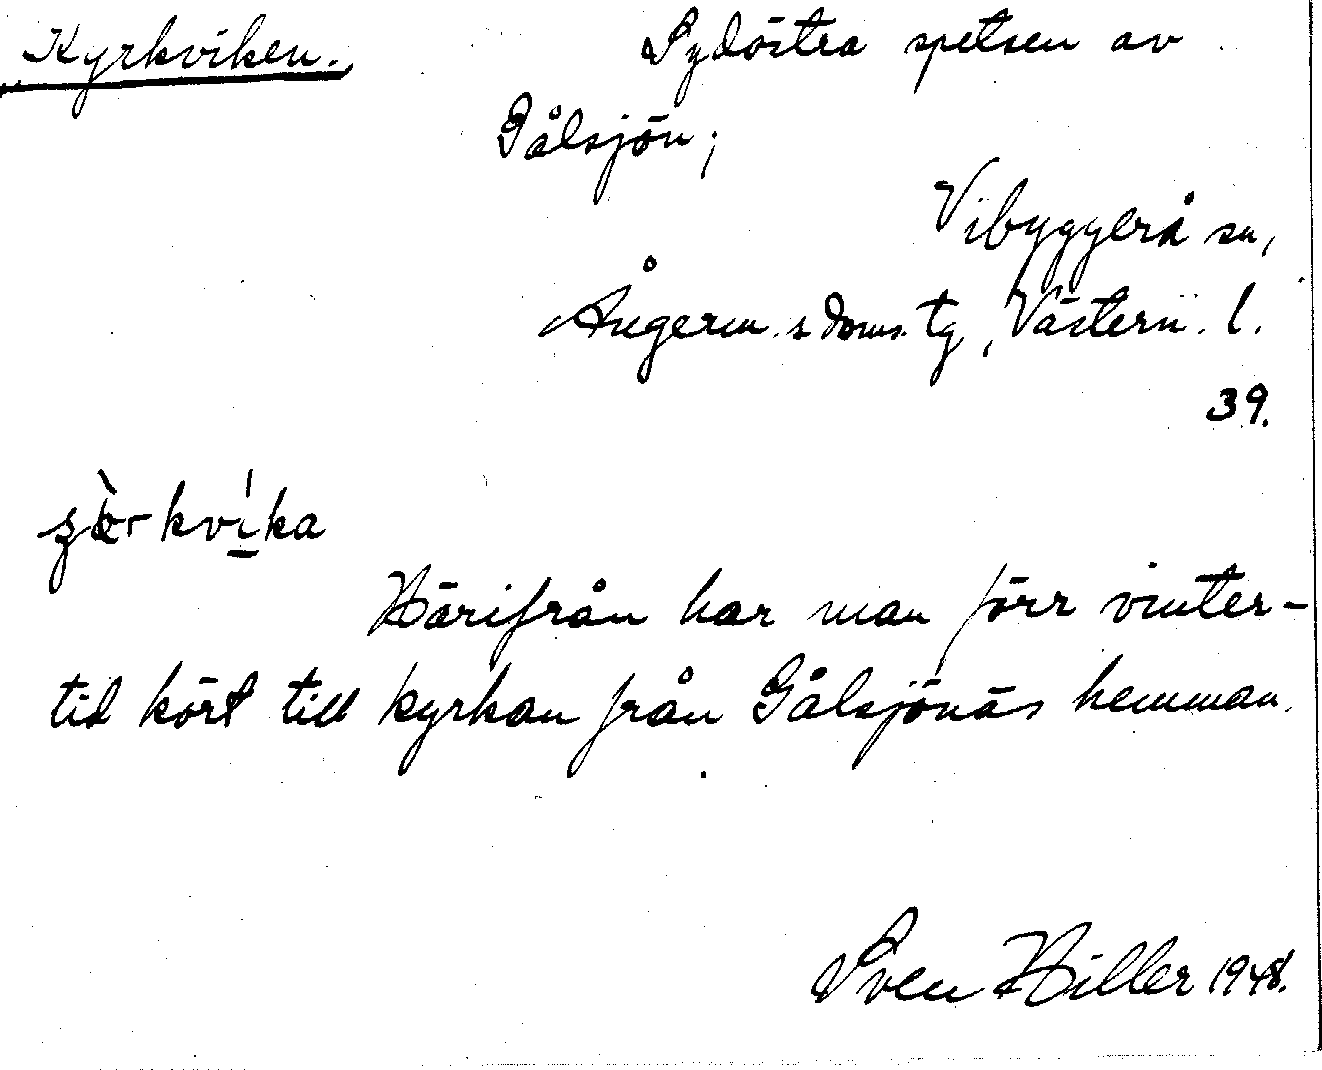 Kyrkviken. Sydöstra spetsen av
Gålsjön;
Vibyggerå sn,
Ångerm. s doms. tg, Västern. l.
39.
kvíka
Härifrån har man förr vinter-
tid kört till kyrkan från Gålsjönäs hemman.
Sven Hiller 1948.